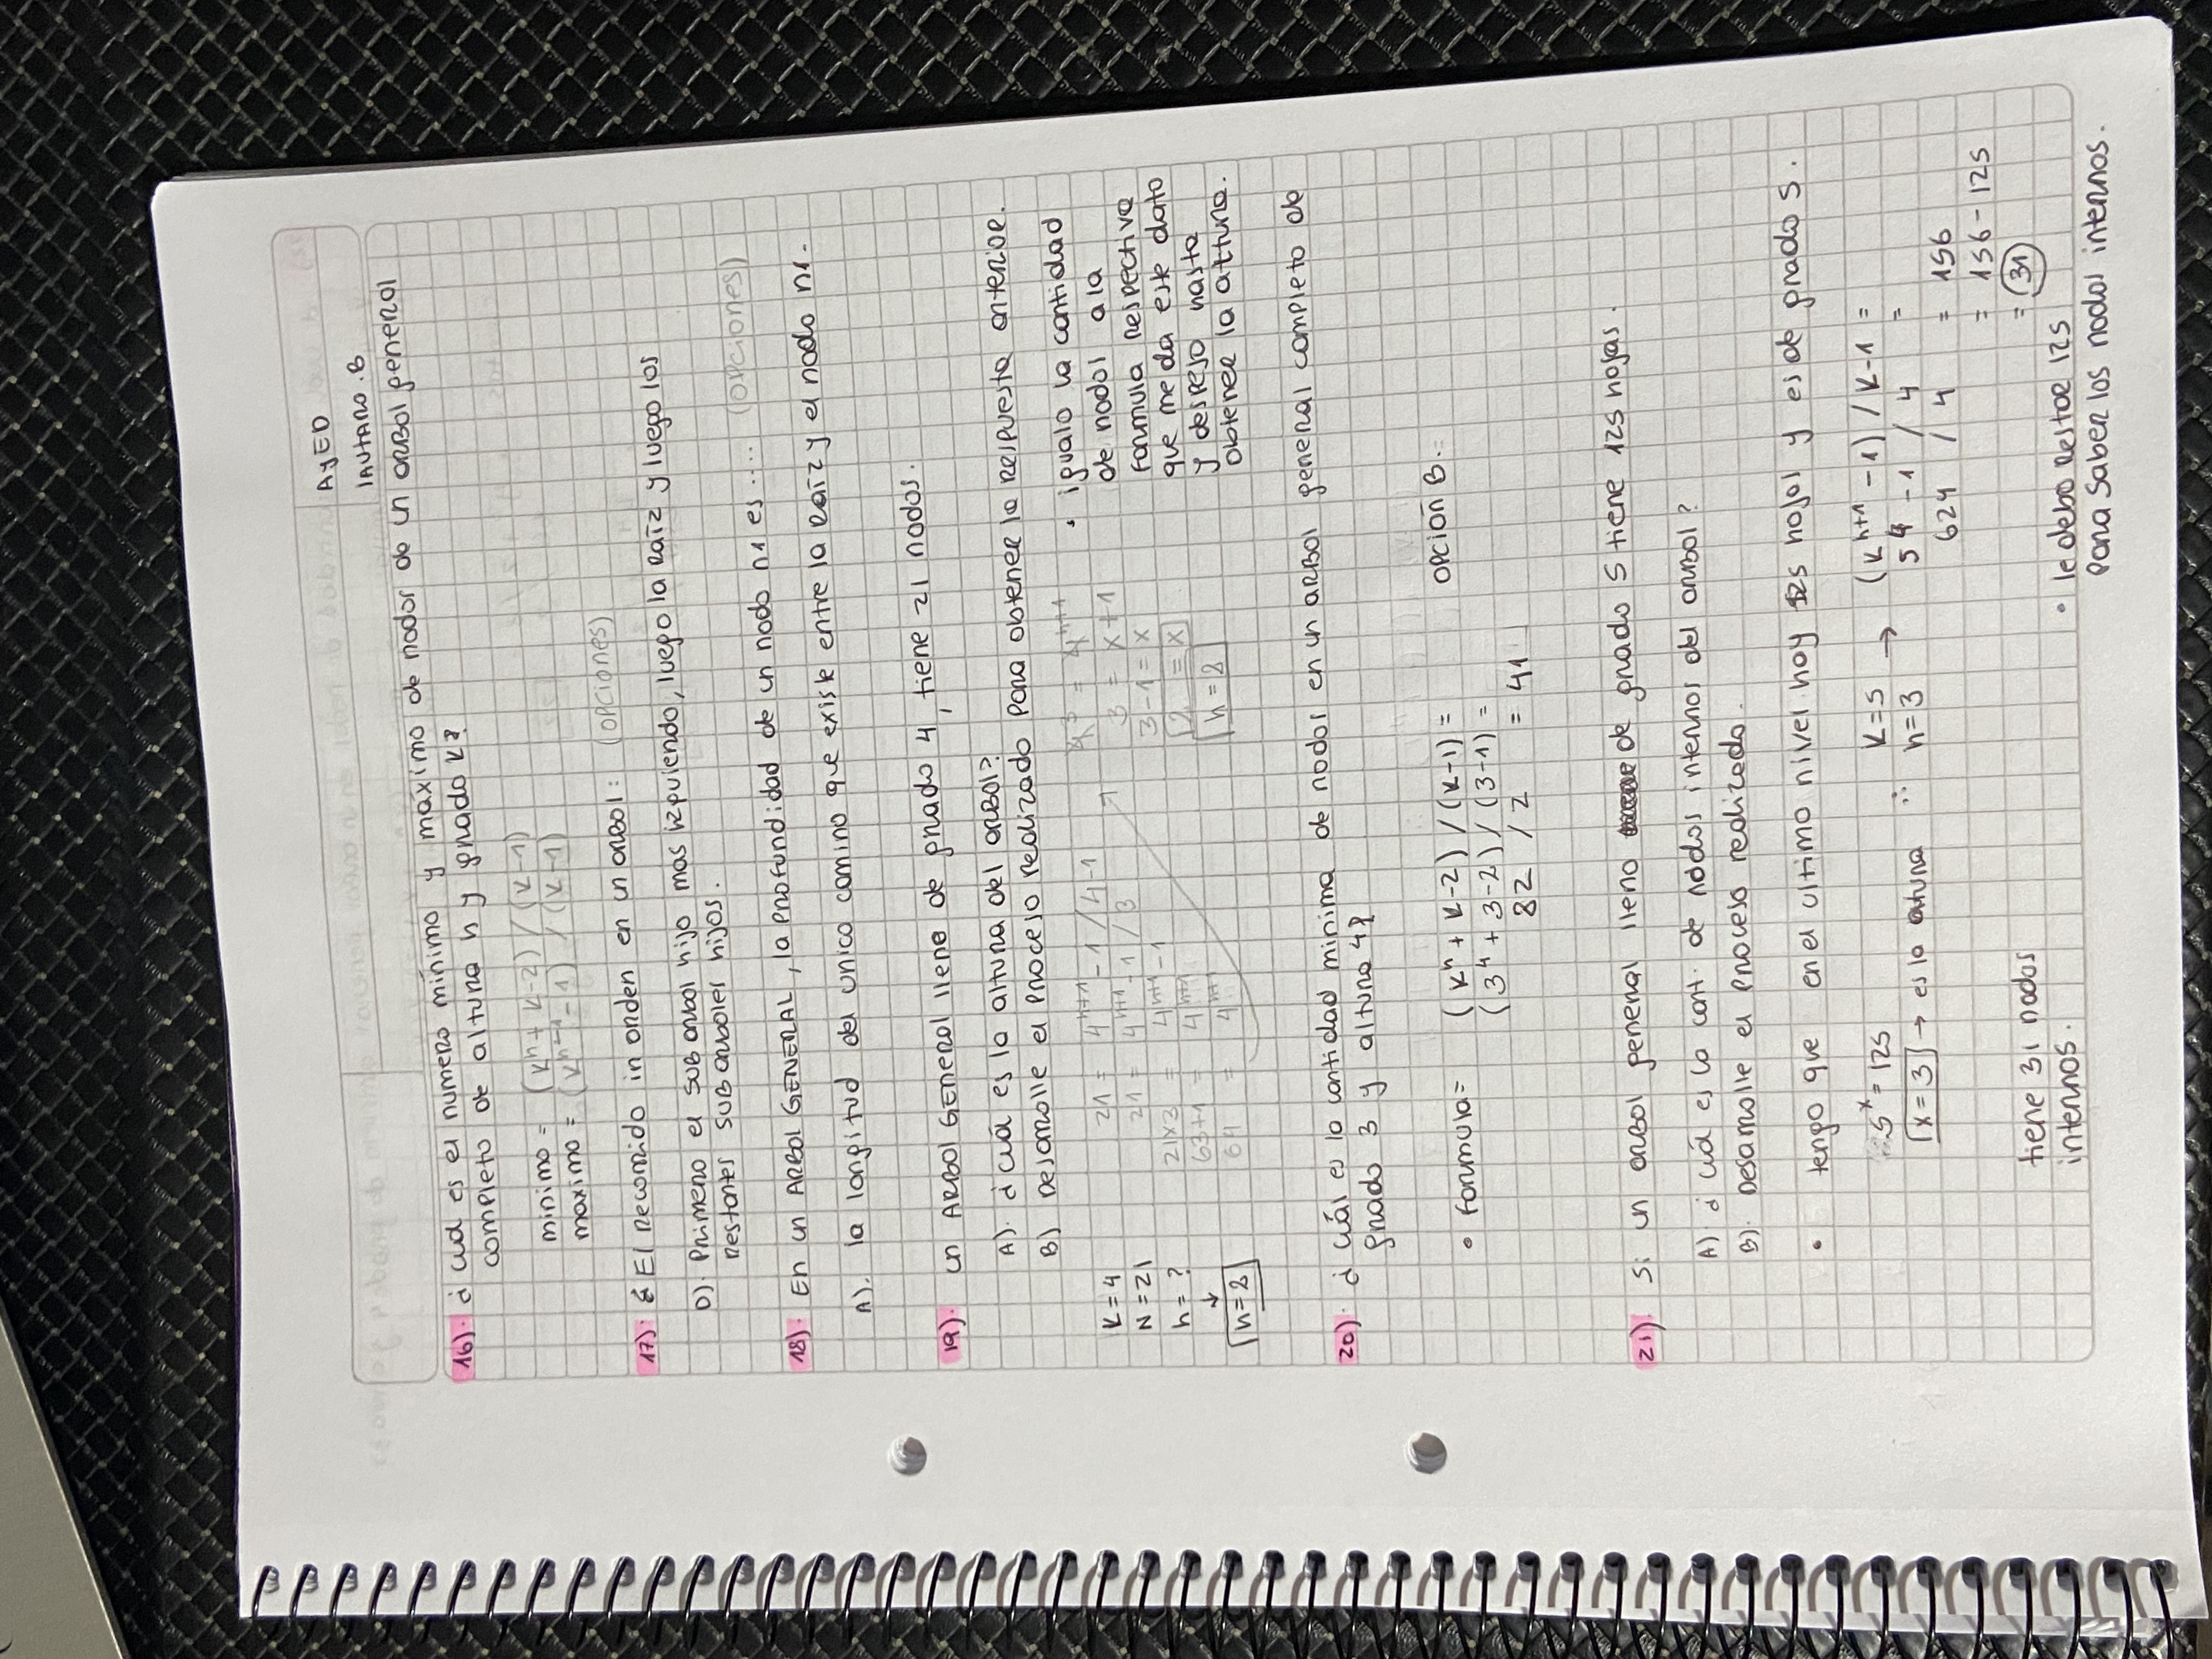 AyED
LAUTARO.B
16). ¿cual es el numero mínimo y máximo de nodos de un arbol general
completo de altura h y grado K?
minimo = (K^h + K-2) / (K-1)
maximo = (K^h+1 - 1) / (K-1)
17). El recorrido in orden en un arbol: (opciones)
D). Primero el sub arbol hijo mas izquierdo, luego la raíz y luego los
restantes sub arboles hijos.
18). En un ARBOL GENERAL, la profundidad de un nodo n1 es .... (opciones)
A). la longitud del unico camino que existe entre la raíz y el nodo n1.
19). un ARBOL GENERAL lleno de grado 4, tiene 21 nodos.
A). ¿cuál es la altura del arbol?
B) Desarrolle el proceso realizado para obtener la respuesta anterior.
K=4
N=21
h=?
↓
h=2
21 = 4^h+1 - 1 / 4-1
21 = 4^h+1 - 1 / 3
21x3 = 4^h+1 - 1
63+1 = 4^h+1
64 = 4^h+1
4^3 = 4^h+1
3 = x+1
3-1 = x
2 = x
h = 2
• igualo la cantidad
de nodos a la
formula respectiva
que me da este dato
y despejo hasta
obtener la altura.
20). ¿cuál es la cantidad minima de nodos en un arbol general completo de
grado 3 y altura 4?
• formula= (K^h + K-2) / (K-1) =
(3^4 + 3-2) / (3-1) =
82 / 2 = 41
opción B.
21). Si un arbol general lleno de grado 5 tiene 125 hojas.
A) ¿cuál es la cant. de nodos internos del arbol?
B). Desarrolle el proceso realizado.
• tengo que en el ultimo nivel hay 125 hojas y es de grado 5.
5^x = 125
x = 3 → es la altura
∴ K=5
h=3
→ (K^h+1 - 1) / K-1 =
5^4 - 1 / 4 =
624 / 4 = 156
= 156-125
= 31
tiene 31 nodos
internos.
• le debo restar 125
para saber los nodos internos.